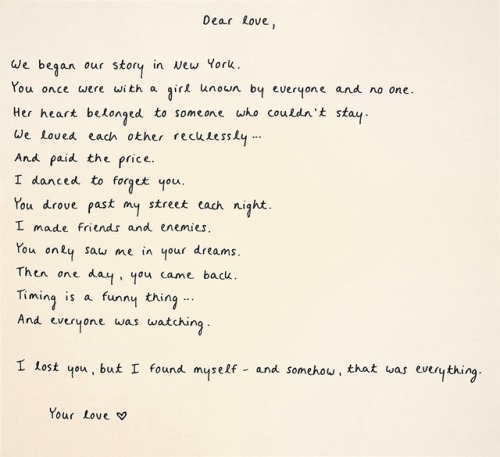 Dear love,
We began our story in New York.
You once were with a girl known by everyone and no one.
Her heart belonged to someone who couldn't stay.
We loved each other recklessly...
And paid the price.
I danced to forget you.
You drove past my street each night.
I made friends and enemies.
You only saw me in your dreams.
Then one day, you came back.
Timing is a funny thing...
And everyone was watching.
I lost you, but I found myself - and somehow, that was everything.
Your love ♡